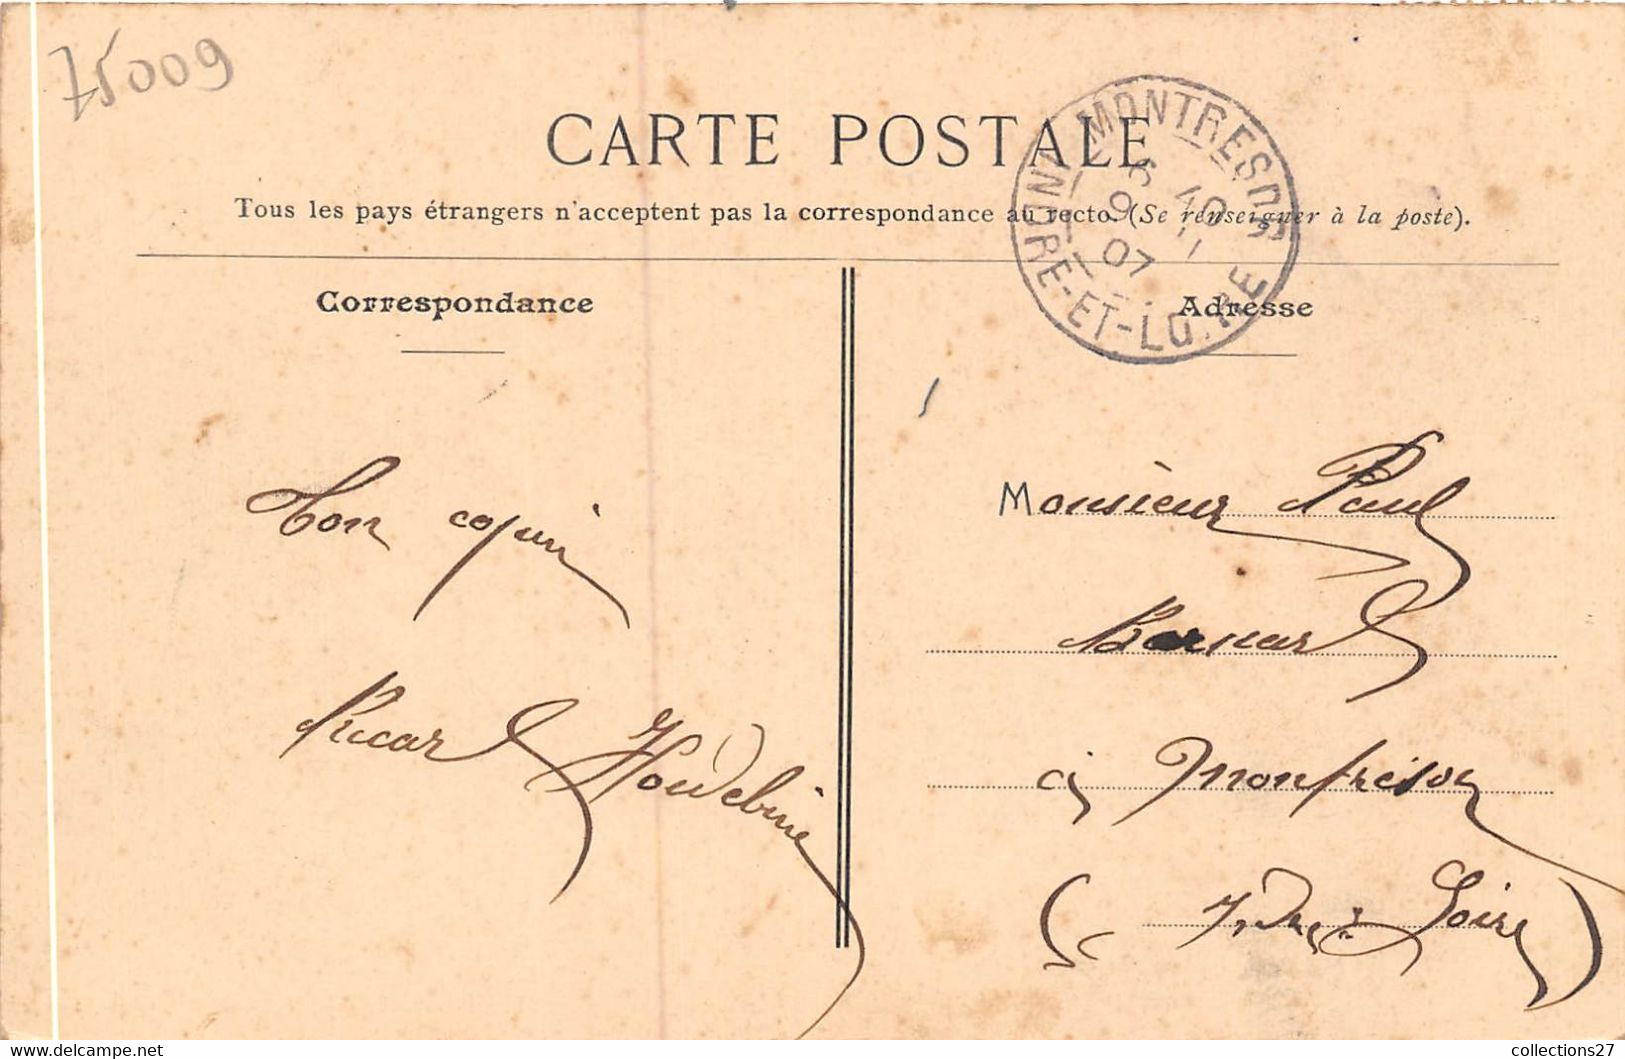 75009
CARTE POSTALE
Tous les pays étrangers n'acceptent pas la correspondance au recto. (Se renseigner à la poste).
MONTRESOR
INDRE-ET-LOIRE
07
Correspondance
Adresse
Ton copain
Ricard Houdebine
Monsieur Paul
Bernard
à Montrésor
(Indre & Loire)
collections27